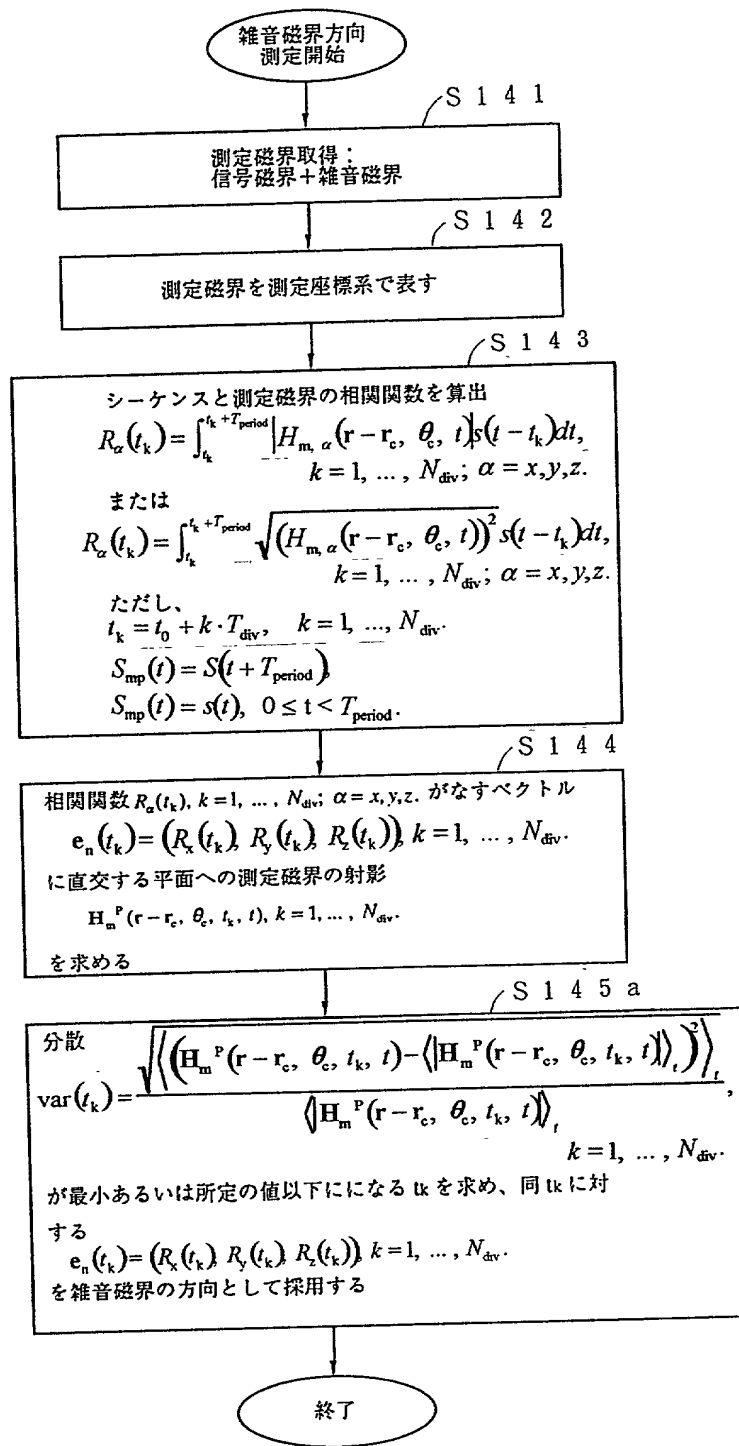 雑音磁界方向
測定開始
S141
測定磁界取得：
信号磁界＋雑音磁界
S142
測定磁界を測定座標系で表す
S143
シーケンスと測定磁界の相関関数を算出
R_α(t_k)=∫_{t_k}^{t_k+T_period}|H_{m, α}(r−r_c, θ_c, t)|s(t−t_k)dt,
k=1, ... , N_div; α=x,y,z.
または
R_α(t_k)=∫_{t_k}^{t_k+T_period}√(H_{m, α}(r−r_c, θ_c, t))² s(t−t_k)dt,
k=1, ... , N_div; α=x,y,z.
ただし、
t_k=t_0+k·T_div, k=1, ..., N_div.
S_mp(t)=S(t+T_period),
S_mp(t)=s(t), 0≤t<T_period.
S144
相関関数 R_α(t_k), k=1, ... , N_div; α=x,y,z. がなすベクトル
e_n(t_k)=(R_x(t_k), R_y(t_k), R_z(t_k)), k=1, ... , N_div.
に直交する平面への測定磁界の射影
H_m^P(r−r_c, θ_c, t_k, t), k=1, ... , N_div.
を求める
S145a
分散
var(t_k)=√⟨(H_m^P(r−r_c, θ_c, t_k, t)−⟨|H_m^P(r−r_c, θ_c, t_k, t)|⟩_t)²⟩_t / ⟨|H_m^P(r−r_c, θ_c, t_k, t)|⟩_t,
k=1, ... , N_div.
が最小あるいは所定の値以下にになる tk を求め、同 tk に対
する
e_n(t_k)=(R_x(t_k), R_y(t_k), R_z(t_k)), k=1, ... , N_div.
を雑音磁界の方向として採用する
終了